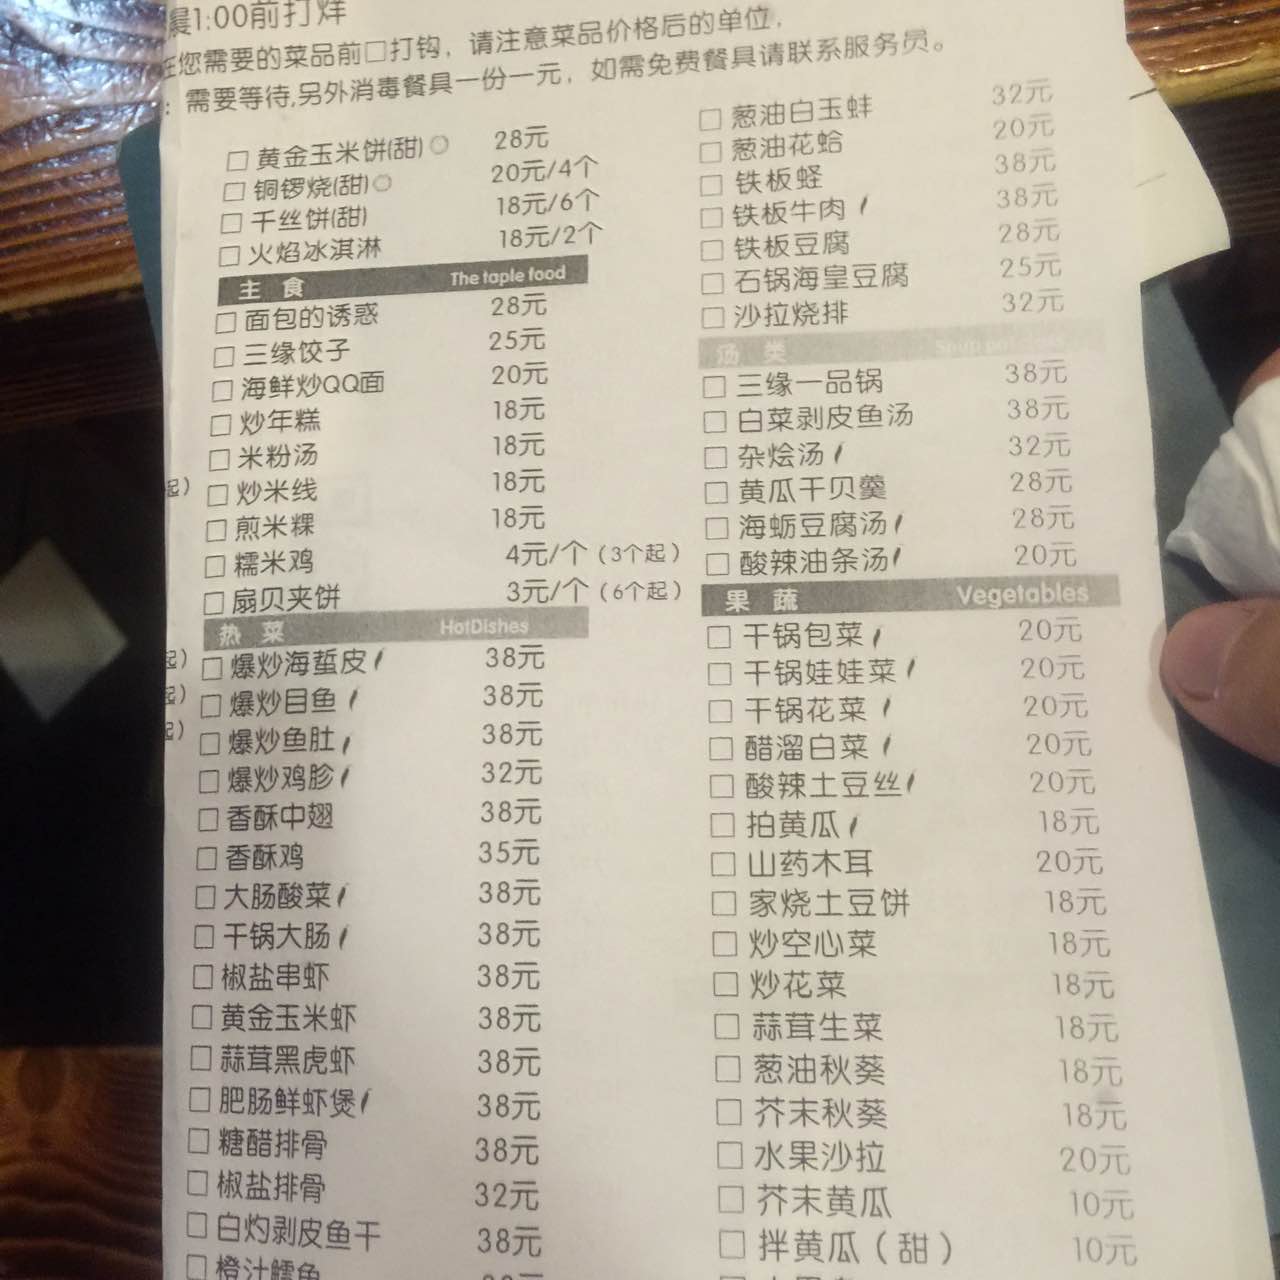 晨1:00前打烊
在您需要的菜品前□打钩，请注意菜品价格后的单位，
：需要等待,另外消毒餐具一份一元，如需免费餐具请联系服务员。
□ 黄金玉米饼(甜) 28元
□ 铜锣烧(甜) 20元/4个
□ 千丝饼(甜) 18元/6个
□ 火焰冰淇淋 18元/2个
主 食 The taple food
□ 面包的诱惑 28元
□ 三缘饺子 25元
□ 海鲜炒QQ面 20元
□ 炒年糕 18元
□ 米粉汤 18元
起) □ 炒米线 18元
□ 煎米粿 18元
□ 糯米鸡 4元/个（3个起）
□ 扇贝夹饼 3元/个（6个起）
热 菜 HotDishes
起) □ 爆炒海蜇皮 38元
起) □ 爆炒目鱼 38元
起) □ 爆炒鱼肚 38元
□ 爆炒鸡胗 32元
□ 香酥中翅 38元
□ 香酥鸡 35元
□ 大肠酸菜 38元
□ 干锅大肠 38元
□ 椒盐串虾 38元
□ 黄金玉米虾 38元
□ 蒜茸黑虎虾 38元
□ 肥肠鲜虾煲 38元
□ 糖醋排骨 38元
□ 椒盐排骨 32元
□ 白灼剥皮鱼干 38元
□ 橙汁鳕鱼
□ 葱油白玉蚌 32元
□ 葱油花蛤 20元
□ 铁板蛏 38元
□ 铁板牛肉 38元
□ 铁板豆腐 28元
□ 石锅海皇豆腐 25元
□ 沙拉烧排 32元
汤 类
□ 三缘一品锅 38元
□ 白菜剥皮鱼汤 38元
□ 杂烩汤 32元
□ 黄瓜干贝羹 28元
□ 海蛎豆腐汤 28元
□ 酸辣油条汤 20元
果 蔬 Vegetables
□ 干锅包菜 20元
□ 干锅娃娃菜 20元
□ 干锅花菜 20元
□ 醋溜白菜 20元
□ 酸辣土豆丝 20元
□ 拍黄瓜 18元
□ 山药木耳 20元
□ 家烧土豆饼 18元
□ 炒空心菜 18元
□ 炒花菜 18元
□ 蒜茸生菜 18元
□ 葱油秋葵 18元
□ 芥末秋葵 18元
□ 水果沙拉 20元
□ 芥末黄瓜 10元
□ 拌黄瓜（甜） 10元